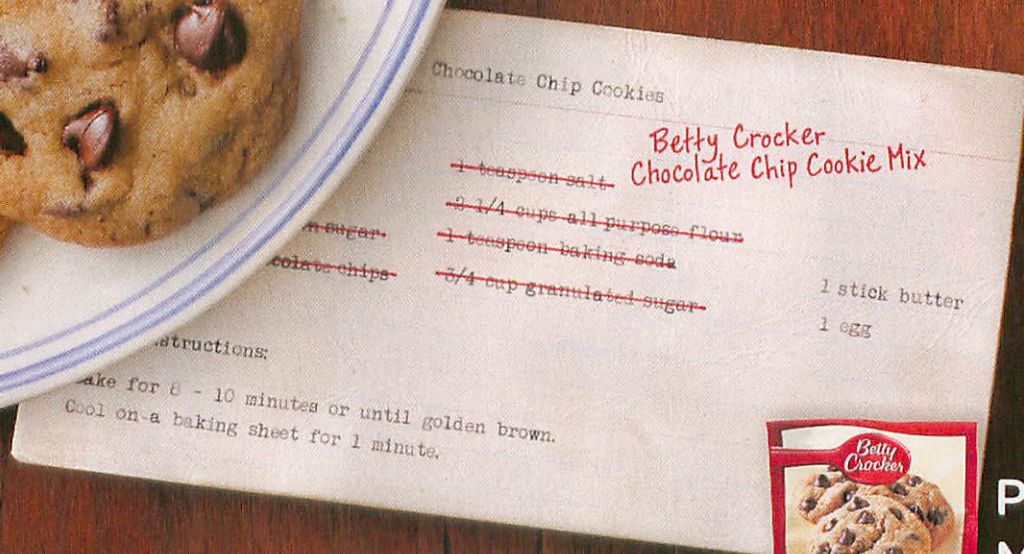 Chocolate Chip Cookies
Betty Crocker
Chocolate Chip Cookie Mix
1 teaspoon salt
2 1/4 cups all purpose flour
n sugar
1 teaspoon baking soda
colate chips
3/4 cup granulated sugar
1 stick butter
1 egg
structions:
ake for 8 - 10 minutes or until golden brown.
Cool on a baking sheet for 1 minute.
Betty
Crocker
P